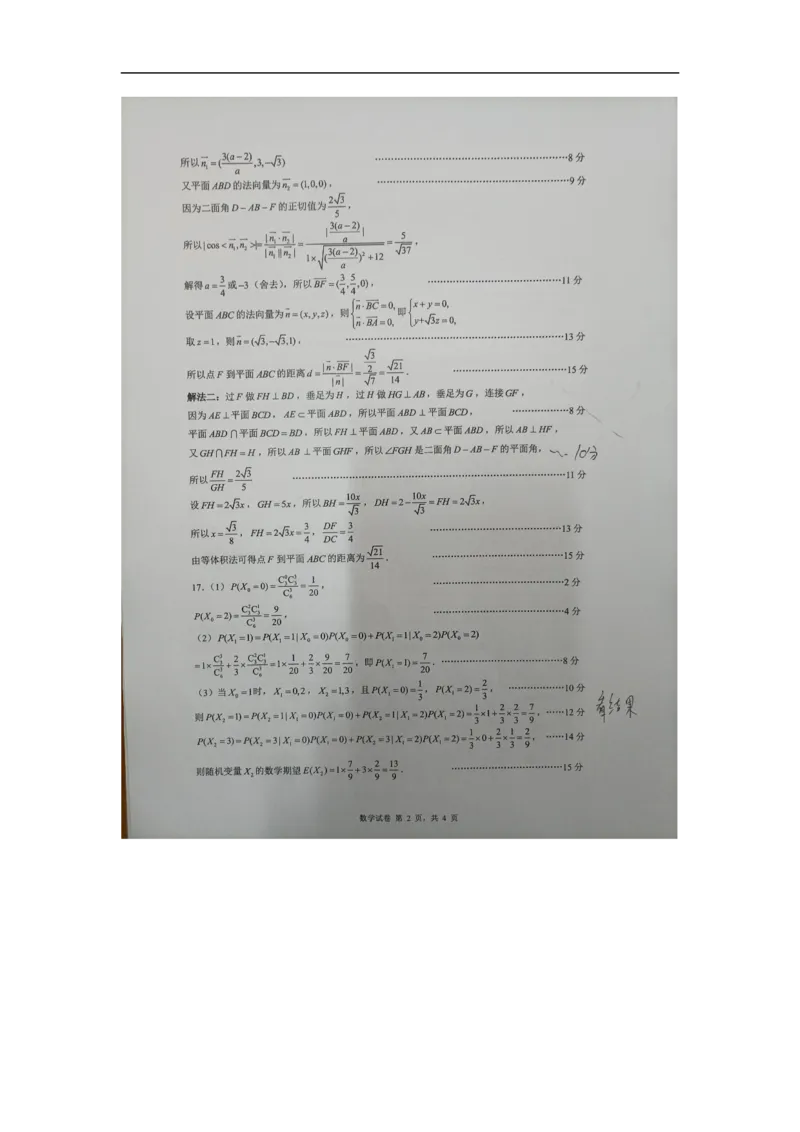 所以n₁=(3(a-2)/a,3,-√3) ……8分
又平面ABD的法向量为n₂=(1,0,0), ……9分
因为二面角D-AB-F的正切值为2√3/5,
所以|cos<n₁,n₂>|=|n₁·n₂|/|n₁||n₂|=|3(a-2)/a|/(1×√((3(a-2)/a)²+12))=5/√37,
解得a=3/4或-3(舍去),所以BF=(3/4,5/4,0), ……11分
设平面ABC的法向量为n=(x,y,z),则{n·BC=0, n·BA=0, 即{x+y=0, y+√3z=0,
取z=1,则n=(√3,-√3,1), ……13分
所以点F到平面ABC的距离d=|n·BF|/|n|=(√3/2)/√7=√21/14. ……15分
解法二:过F做FH⊥BD,垂足为H,过H做HG⊥AB,垂足为G,连接GF,
因为AE⊥平面BCD,AE⊂平面ABD,所以平面ABD⊥平面BCD, ……8分
平面ABD∩平面BCD=BD,所以FH⊥平面ABD,又AB⊂平面ABD,所以AB⊥HF,
又GH∩FH=H,所以AB⊥平面GHF,所以∠FGH是二面角D-AB-F的平面角, 10分
所以FH/GH=2√3/5 ……11分
设FH=2√3x,GH=5x,所以BH=10x/√3,DH=2-10x/√3=FH=2√3x,
所以x=√3/8,FH=2√3x=3/4,DF/DC=3/4 ……13分
由等体积法可得点F到平面ABC的距离为√21/14. ……15分
17.(1)P(X₀=0)=C₃⁰C₃³/C₆³=1/20, ……2分
P(X₀=2)=C₃²C₃¹/C₆³=9/20, ……4分
(2)P(X₁=1)=P(X₁=1|X₀=0)P(X₀=0)+P(X₁=1|X₀=2)P(X₀=2)
=1×C₃³/C₆³+2/3×C₃²C₃¹/C₆³=1×1/20+2/3×9/20=7/20,即P(X₁=1)=7/20. ……8分
(3)当X₀=1时,X₁=0,2,X₂=1,3,且P(X₁=0)=1/3,P(X₁=2)=2/3, ……10分
看结果
则P(X₂=1)=P(X₂=1|X₁=0)P(X₁=0)+P(X₂=1|X₁=2)P(X₁=2)=1/3×1+2/3×2/3=7/9,……12分
P(X₂=3)=P(X₂=3|X₁=0)P(X₁=0)+P(X₂=3|X₁=2)P(X₁=2)=1/3×0+2/3×1/3=2/9, ……14分
则随机变量X₂的数学期望E(X₂)=1×7/9+3×2/9=13/9. ……15分
数学试卷 第 2 页,共 4 页